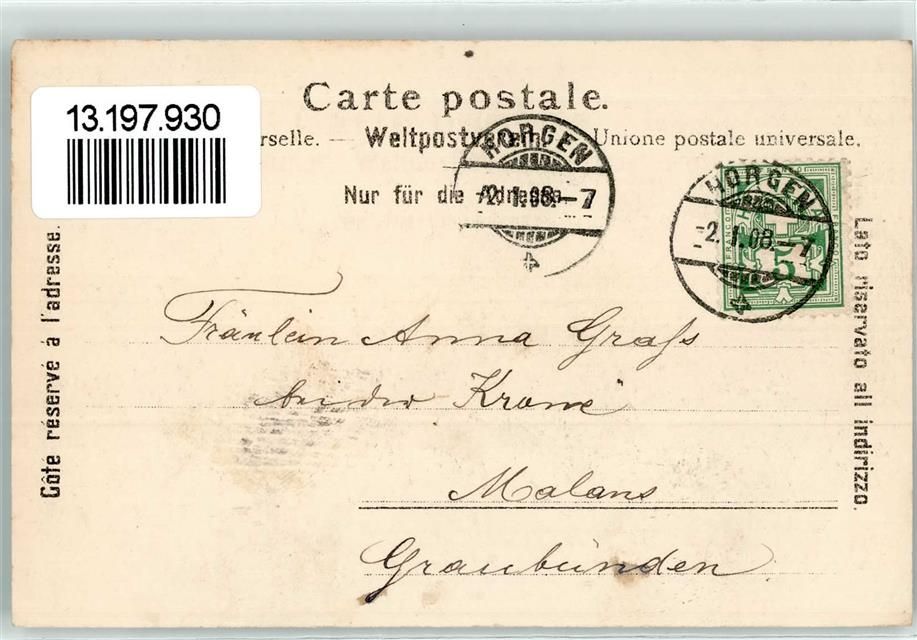 Carte postale.
13.197.930
rselle. — Weltpostverein Unione postale universale.
Nur für die Adresse
HORGEN
-2.1.08.-7
HORGEN
-2.1.08.-7
5
Côte réservé à l'adresse.
Lato riservato all indirizzo.
Fräulein Anna Graſs
bei der Krone
Malans
Graubünden